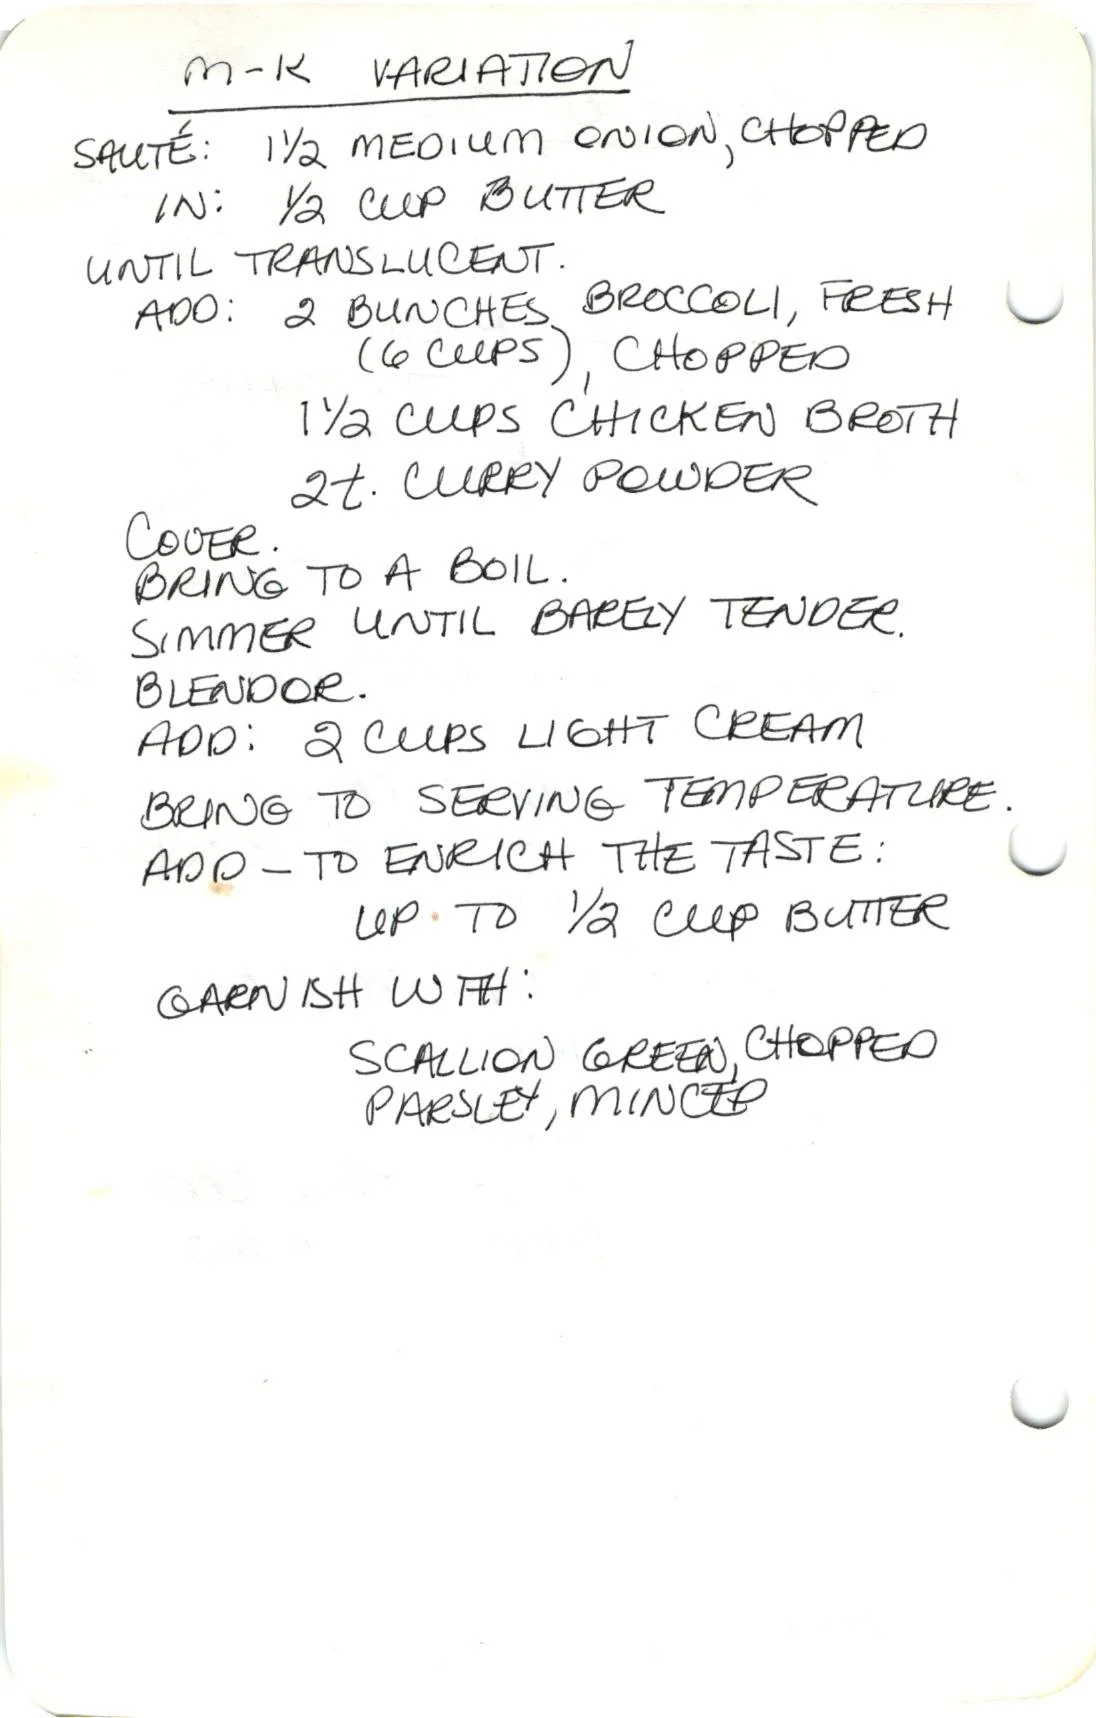 M-K VARIATION
SAUTÉ: 1½ MEDIUM ONION, CHOPPED
IN: ½ CUP BUTTER
UNTIL TRANSLUCENT.
ADD: 2 BUNCHES BROCCOLI, FRESH
(6 CUPS), CHOPPED
1½ CUPS CHICKEN BROTH
2t. CURRY POWDER
COVER.
BRING TO A BOIL.
SIMMER UNTIL BARELY TENDER.
BLENDOR.
ADD: 2 CUPS LIGHT CREAM
BRING TO SERVING TEMPERATURE.
ADD – TO ENRICH THE TASTE:
UP TO ½ CUP BUTTER
GARNISH WITH:
SCALLION GREEN, CHOPPED
PARSLEY, MINCED